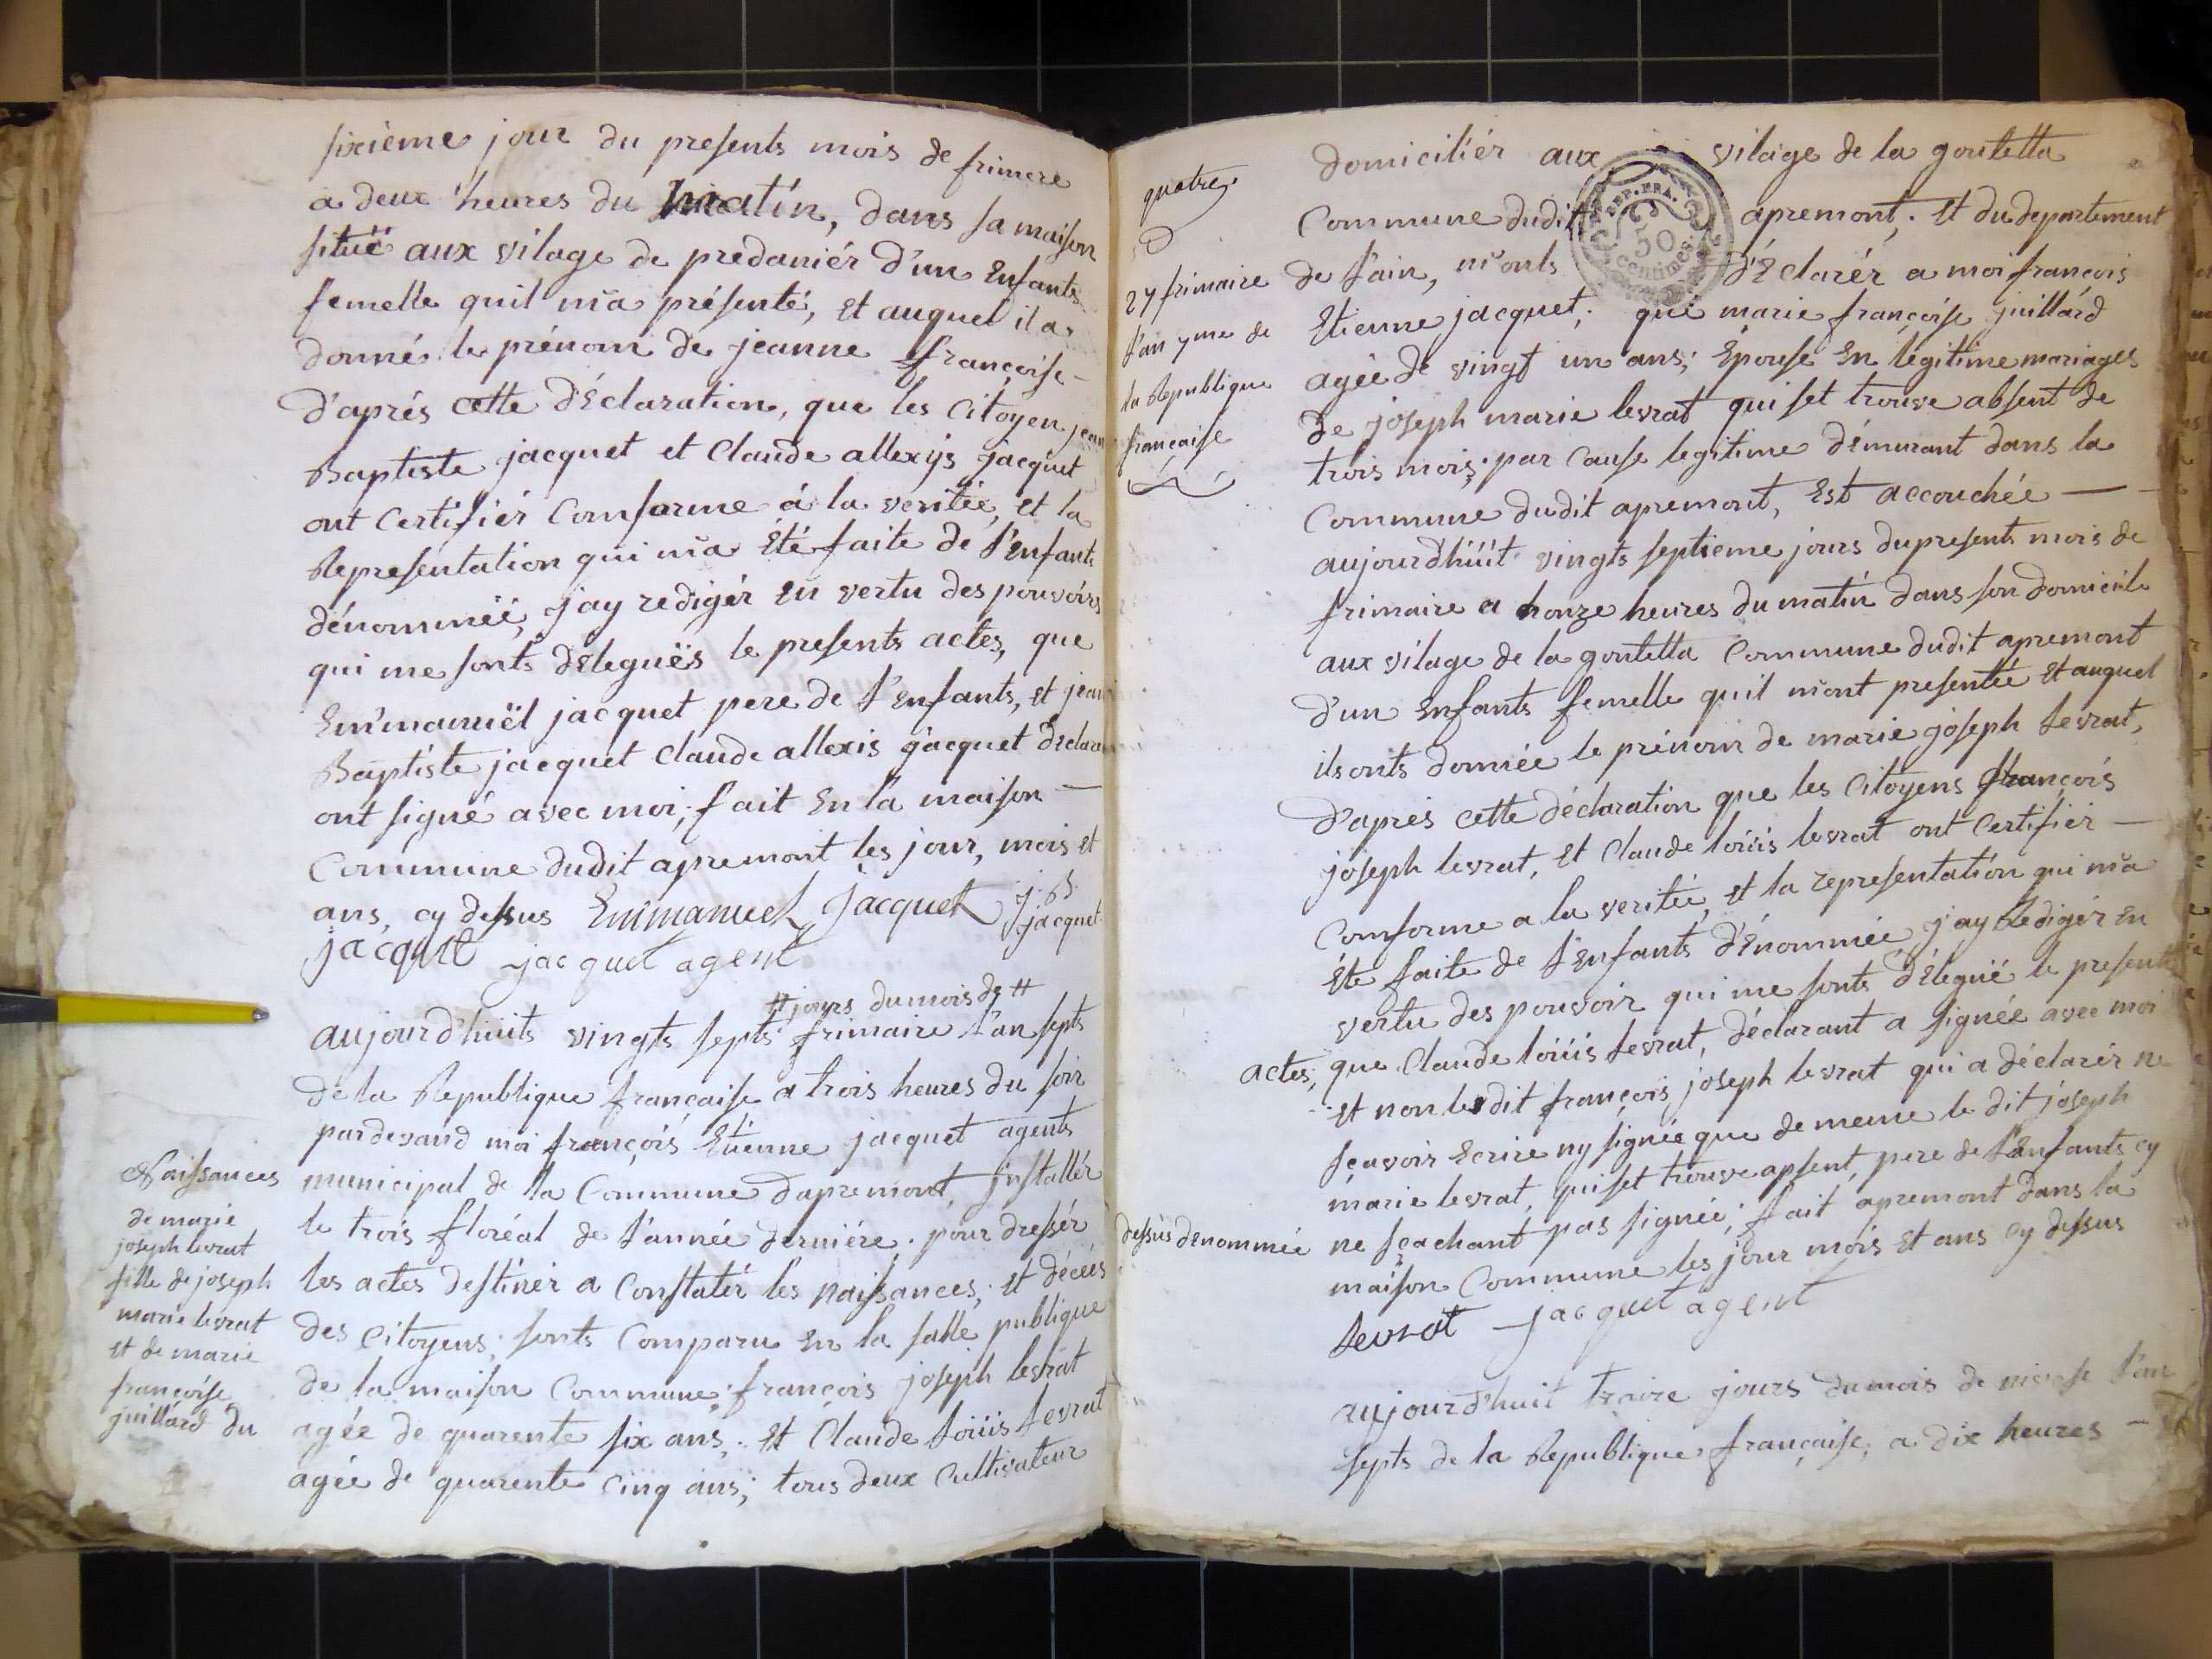 sixième jour du presents mois de frimere
a deux heures du matin, dans sa maison
situéé aux vilage de predaniér d'un Enfants
femelle quil m'a présenté, et auquel il a
donné le prénom de jeanne françoise -
d'aprés cette d'Éclaration, que les Citoyen jean
Baptiste jacquet et Claude allexis jacquet
ont Certifiér Comforme á la veritée, et la
Representation qui m'a Été faite de l'Enfants
dénommée, j'ay redigér En vertu des pouvoirs
qui me sonts déleguës le presents actes, que
Em̃manuël jacquet pere de l'Enfants, et jean
Baptiste jacquet Claude allexis jacquet Déclarant
ont signé avec moi, fait En la maison —
Commune dudit apremont les jour, mois et
ans, cy dessus Emmanuel Jacquet j. B. jacquet
jacquet jacquet agent
# jours du mois de #
aujourd'huits vingts septs frimaire l'an septs
de la Republique française a trois heures du soir
pardevand moi françois Etienne jacquet agents
municipal de la Commune dapremont, jnstallér
le trois floréal de l'année derniére, pour dressér
les actes destinér a Constatér les naissances, et décés
des Citoyens, sonts Comparu En la salle publique
de la maison Commune, françois joseph levrat
agée de quarente six ans, Et Claude loüis levrat
agée de quarente Cinq ans, tous deux Cultivateur
Naissances
de marie
joseph levrat
fille de joseph
marie levrat
et de marie
françoise
juillard du
quatre
27 frimaire
l'an 7me de
la Republique
française
domiciliér aux vilage de la goutetta
Commune dudit apremont, Et du departement
de l'ain, m'onts d'Éclarér a moi françois
Etienne jacquet, que marie françoise juillard
agée de vingt un ans, Épouse En légitime mariages
de joseph marie levrat qui set trouve absent de
trois mois par Cause legitime démurant dans la
Commune dudit apremont, Est accouchée —
aujourdhüit vingts septieme jours du presents mois de
frimaire a honze heures du matin dans son domicile
aux vilage de la goutetta Commune dudit apremont
d'un Enfants femelle quil m'ont presentée et auquel
ils onts donnée le prénom de marie joseph levrat,
d'aprés cette déclaration que les Citoyens françois
joseph levrat, Et Claude loüis levrat ont Certifiér —
Comforme a la veritée, et la representation qui m'a
Éte faite de l'Enfants d'énommée, j'ay Redigér En
vertu des pouvoir qui me sonts déleguë le presents
actes, que Claude loüis levrat, déclarant a signée avec moi
et non le dit françois joseph levrat qui a déclarér ne
sçavoir Ecrire ny signée que de meme le dit joseph
marie levrat, qui set trouve apsent, pere de l'Enfants cy
dessus denommée ne sçachant pas signée, fait apremont dans la
maison Commune les jour mois et ans cy dessus
levrat jacquet agent
aujourd'huit traize jours du mois de nivose l'an
septs de la Republique française, a dix heures —
REP. FRA.
50
centimes